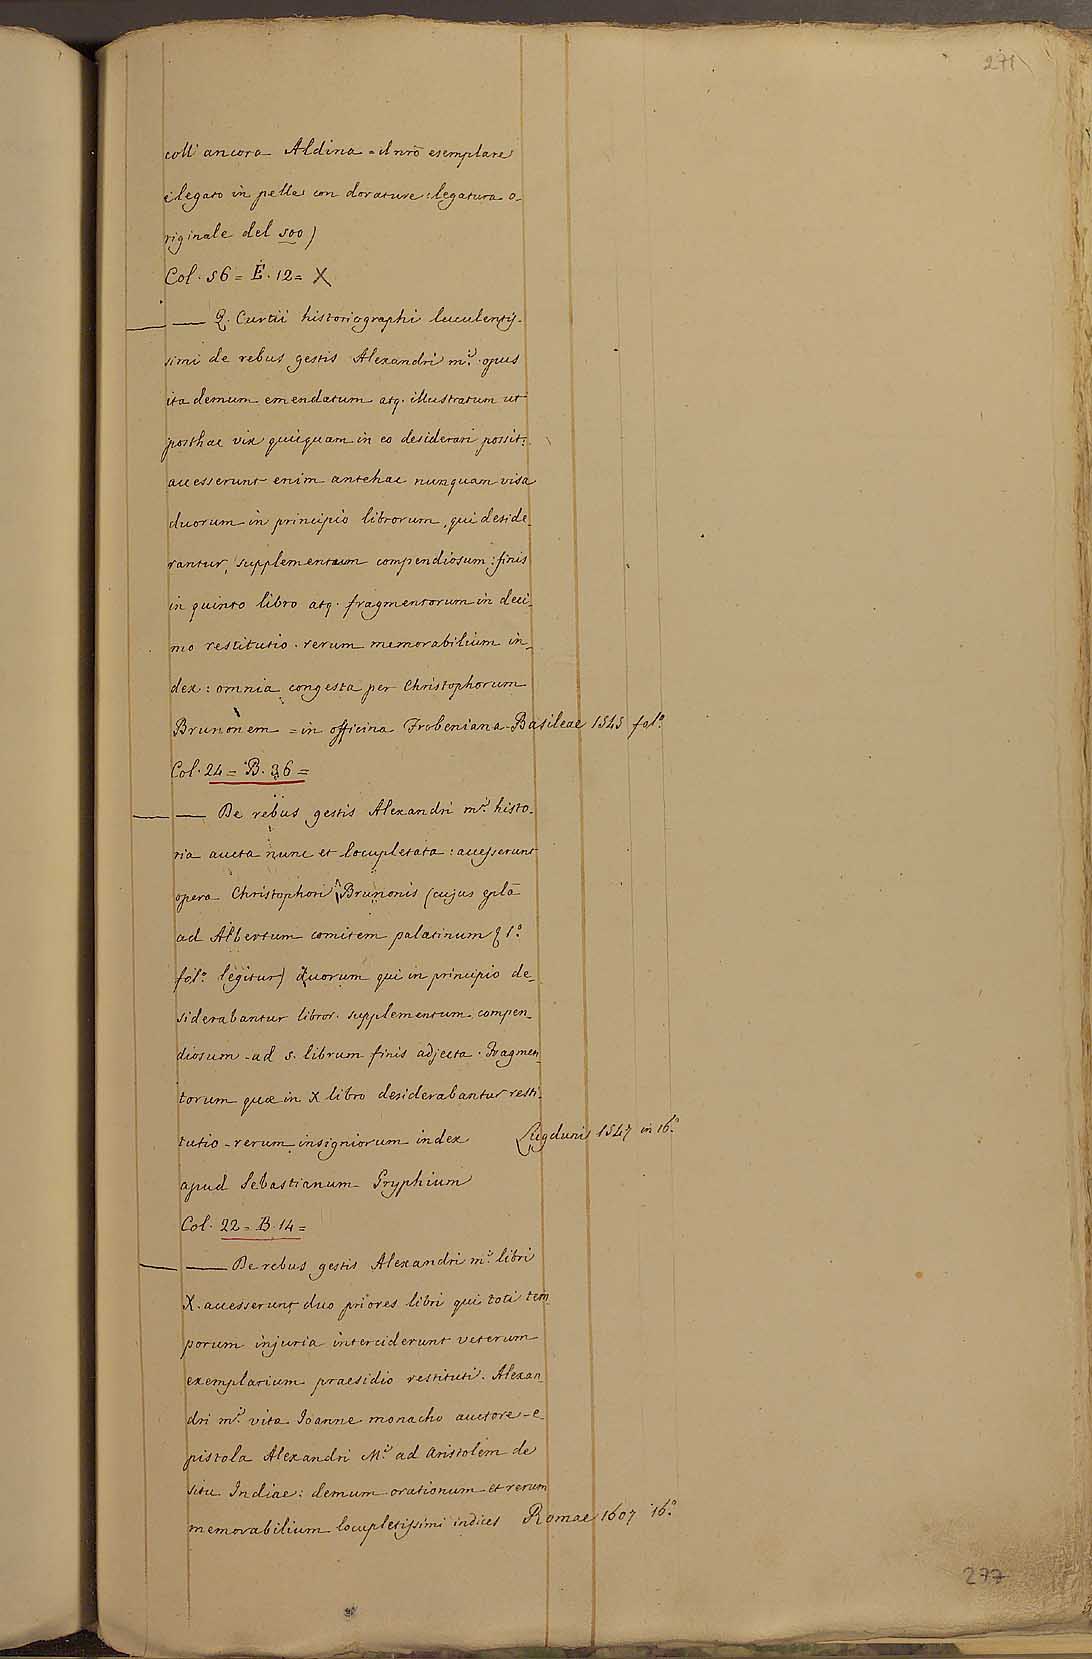 271
coll' ancora Aldina = il nrõ esemplare
è legato in pelle con dorature: legatura o-
riginale del 500)
Col. 56 = E. 12 = X
— — Q. Curtii historiographi luculentis-
simi de rebus gestis Alexandri m.i opus
ita demum emendatum atq. illustratum ut
posthac vix quicquam in eo desiderari possit:
accesserunt enim antehac nunquam visa
duorum in principio librorum, qui deside-
rantur, supplementum compendiosum: finis
in quinto libro atq. fragmentorum in deci-
mo restitutio. rerum memorabilium in-
dex: omnia congesta per Christophorum
Brunonem = in officina Frobeniana - Basileae 1545 fol.o
Col. 24 = B. 36 =
— — De rebus gestis Alexandri m.i histo-
ria aucta nunc et locupletata: accesserunt
opera Christophori Brunonis (cujus eplã
ad Albertum comitem palatinum 1.o
fol.o legitur) duorum qui in principio de-
siderabantur libror. supplementum compen-
diosum - ad 5. librum finis adjecta. Fragmen-
torum quae in X libro desiderabantur resti-
tutio - rerum insigniorum index Lugduni 1547 in 16.o
apud Sebastianum Gryphium
Col. 22 = B. 14 =
— — De rebus gestis Alexandri m.i libri
X. accesserunt duo priores libri qui toti tem-
porum injuria interciderunt veterum
exemplarium praesidio restituti. Alexan-
dri m.i vita Joanne monacho auctore - e-
pistola Alexandri M.i ad Aristolem de
situ Indiae: demum orationum et rerum
memorabilium locupletissimi indices Romae 1607 16.o
277